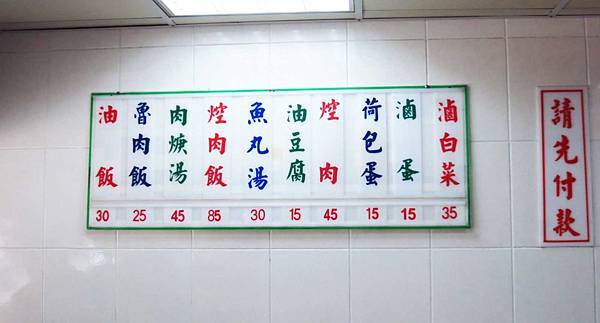 油飯 30
魯肉飯 25
肉焿湯 45
焢肉飯 85
魚丸湯 30
油豆腐 15
焢肉 45
荷包蛋 15
滷蛋 15
滷白菜 35
請先付款